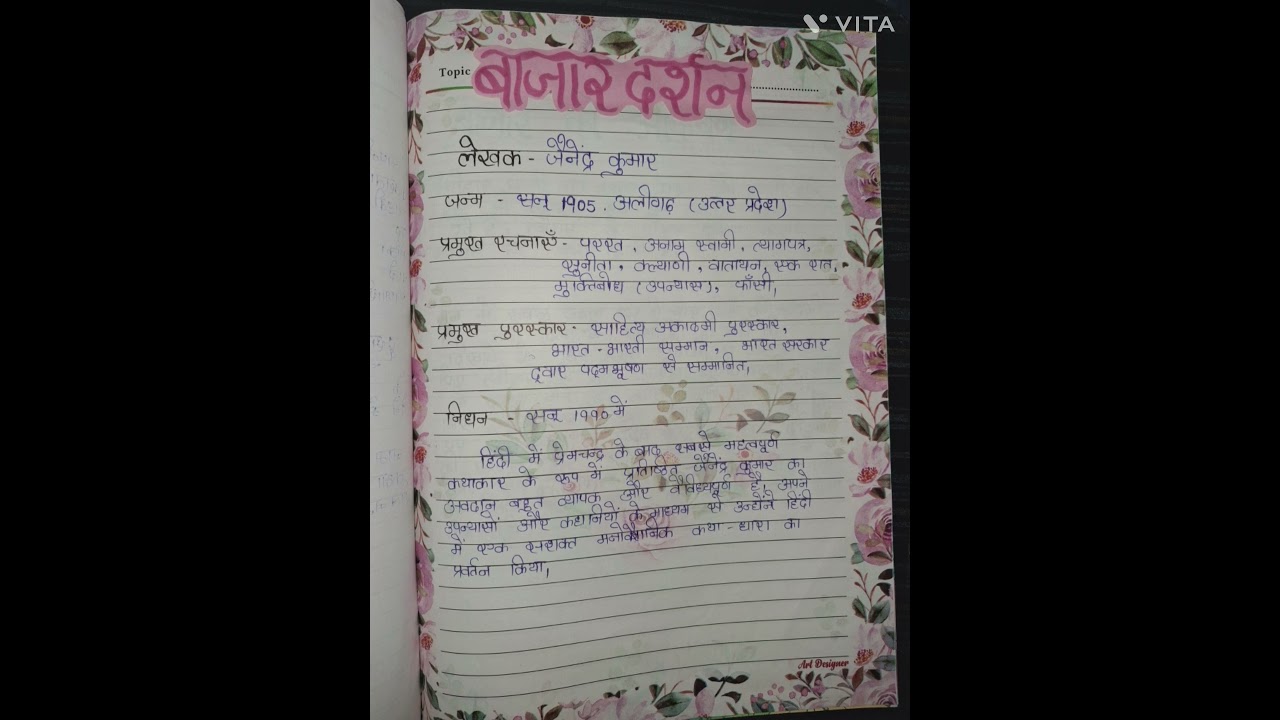 VITA
Topic बाजार दर्शन
लेखक - जैनेंद्र कुमार
जन्म - सन् 1905. अलीगढ़ (उत्तर प्रदेश)
प्रमुख रचनाएँ - परख, अनाम स्वामी, त्यागपत्र,
सुनीता, कल्याणी, वातायन, एक रात,
मुक्तिबोध (उपन्यास), फाँसी,
प्रमुख पुरस्कार - साहित्य अकादमी पुरस्कार,
भारत-भारती सम्मान, भारत सरकार
द्वार पद्मभूषण से सम्मानित,
निधन - सन् 1990 में
हिंदी में प्रेमचन्द्र के बाद सबसे महत्वपूर्ण
कथाकार के रूप में प्रतिष्ठित जैनेंद्र कुमार का
अवदान बहुत व्यापक और वैविध्यपूर्ण है, अपने
उपन्यासों और कहानियों के माध्यम से उन्होंने हिंदी
में एक सशक्त मनोवैज्ञानिक कथा-धारा का
प्रवर्तन किया,
Art Designer